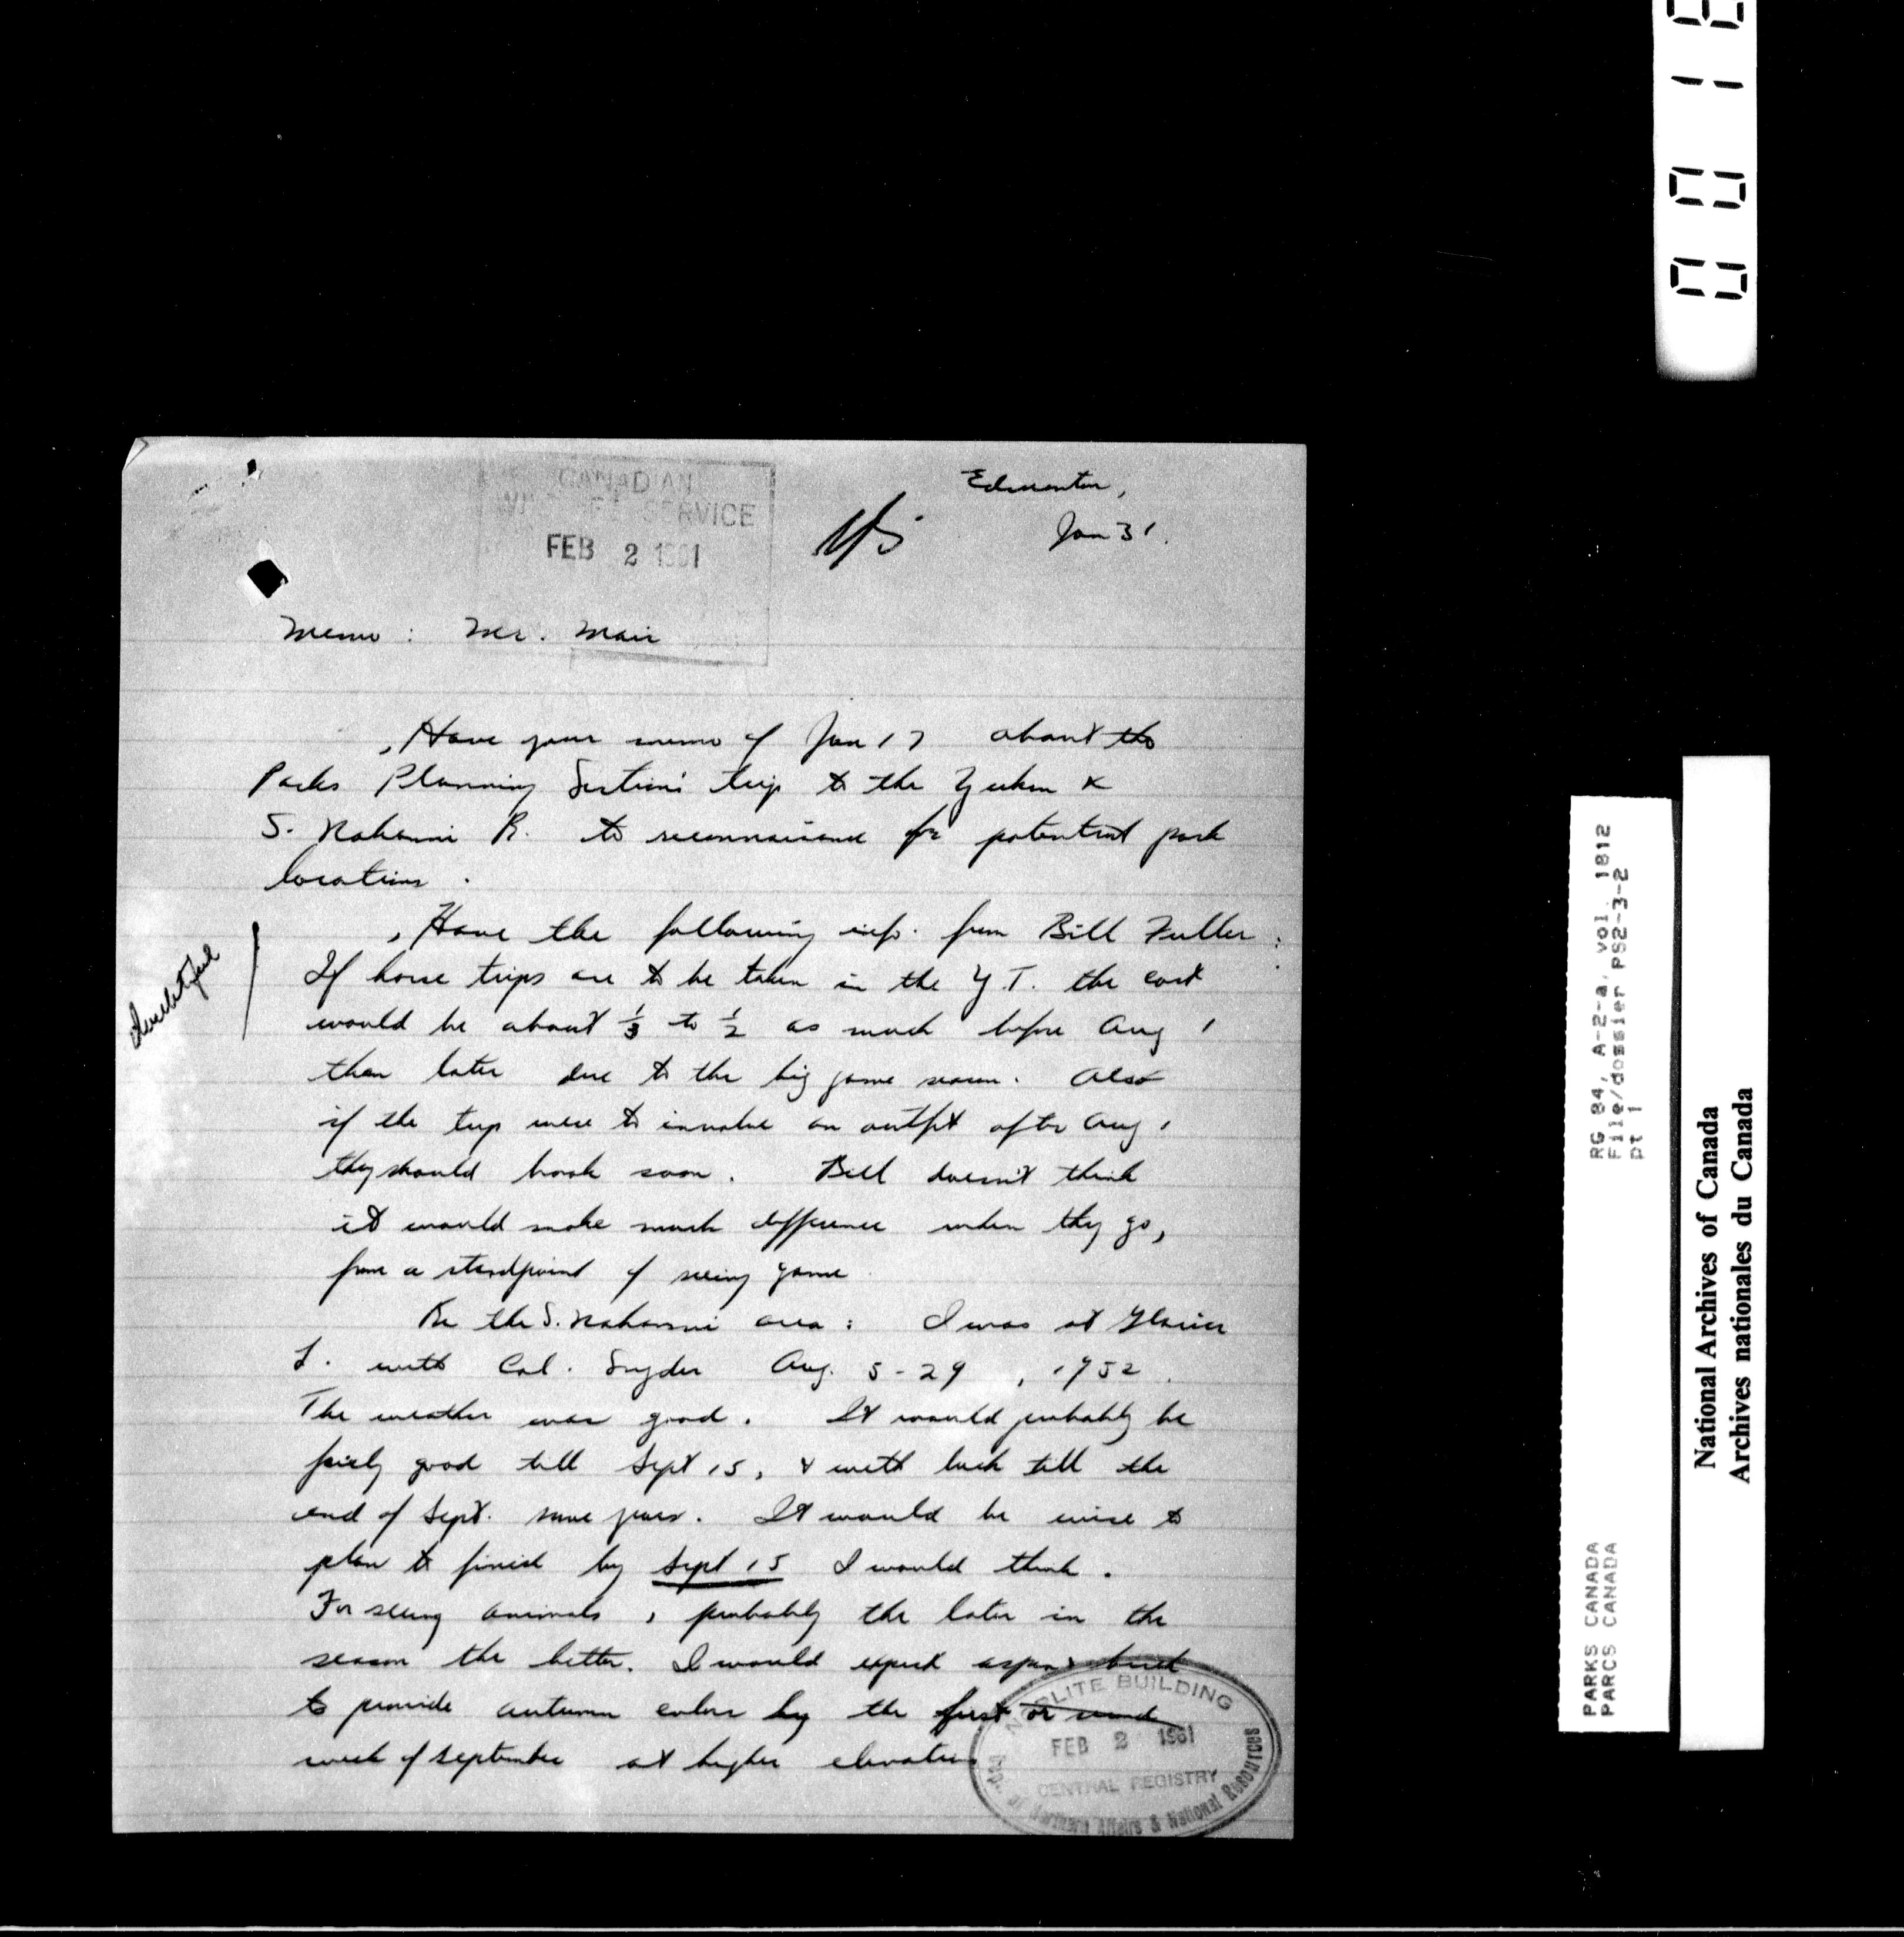 Edmonton,
Jan 31.
CANADIAN
WILDLIFE SERVICE
FEB 2 1961
Memo: Mr. Mair
Have your memo of Jan 17 about the
Parks Planning Section's trip to the Yukon &
S. Nahanni R. to reconnaissance for potential park
locations.
Have the following info. from Bill Fuller:
doubtful
If horse trips are to be taken in the Y.T. the cost
would be about 1/3 to 1/2 as much before Aug 1
than later due to the big game season. Also
if the trip were to involve an outfit after Aug 1
they should book soon. Bill doesn't think
it would make much difference when they go,
from a standpoint of seeing game
Re the S. Nahanni area: I was at Glacier
L. with Col. Snyder Aug. 5-29, 1952.
The weather was good. It would probably be
fairly good till Sept 15, & with luck till the
end of Sept. some years. It would be wise to
plan to finish by Sept 15 I would think.
For seeing animals, probably the later in the
season the better. I would expect aspen & birch
to provide autumn colors by the first or second
week of September at higher elevations
NORLITE BUILDING
FEB 2 1961
CENTRAL REGISTRY
Dept. of Northern Affairs & National Resources
0018
RG 84, A-2-a, vol. 1812
File/dossier PS2-3-2
pt 1
PARKS CANADA
PARCS CANADA
National Archives of Canada
Archives nationales du Canada